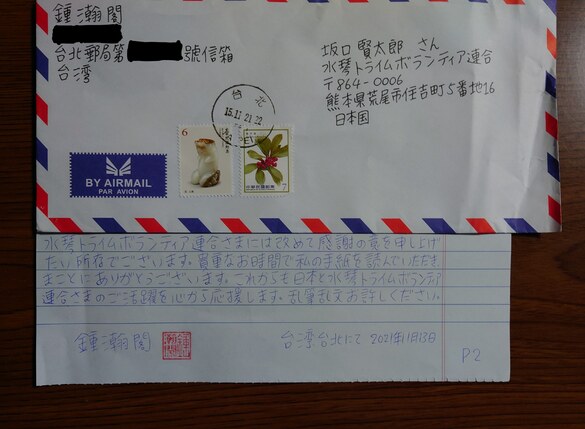 鍾瀚閣
台北郵局第 號信箱
台湾
坂口 賢太郎 さん
水琴トライムボランティア連合
〒864-0006
熊本県荒尾市住吉町5番地16
日本国
台北
15.11.21 22
TAIPEI
6
7
中華民國郵票
BY AIRMAIL
PAR AVION
水琴トライムボランティア連合さまには改めて感謝の意を申し上げ
たい所存でございます。貴重なお時間で私の手紙を読んでいただき
まことにありがとうございます。これからも日本と水琴トライムボランティア
連合さまのご活躍を心から応援します。乱筆乱文お許しください。
鍾瀚閣
台湾台北にて 2021年11月13日
P2